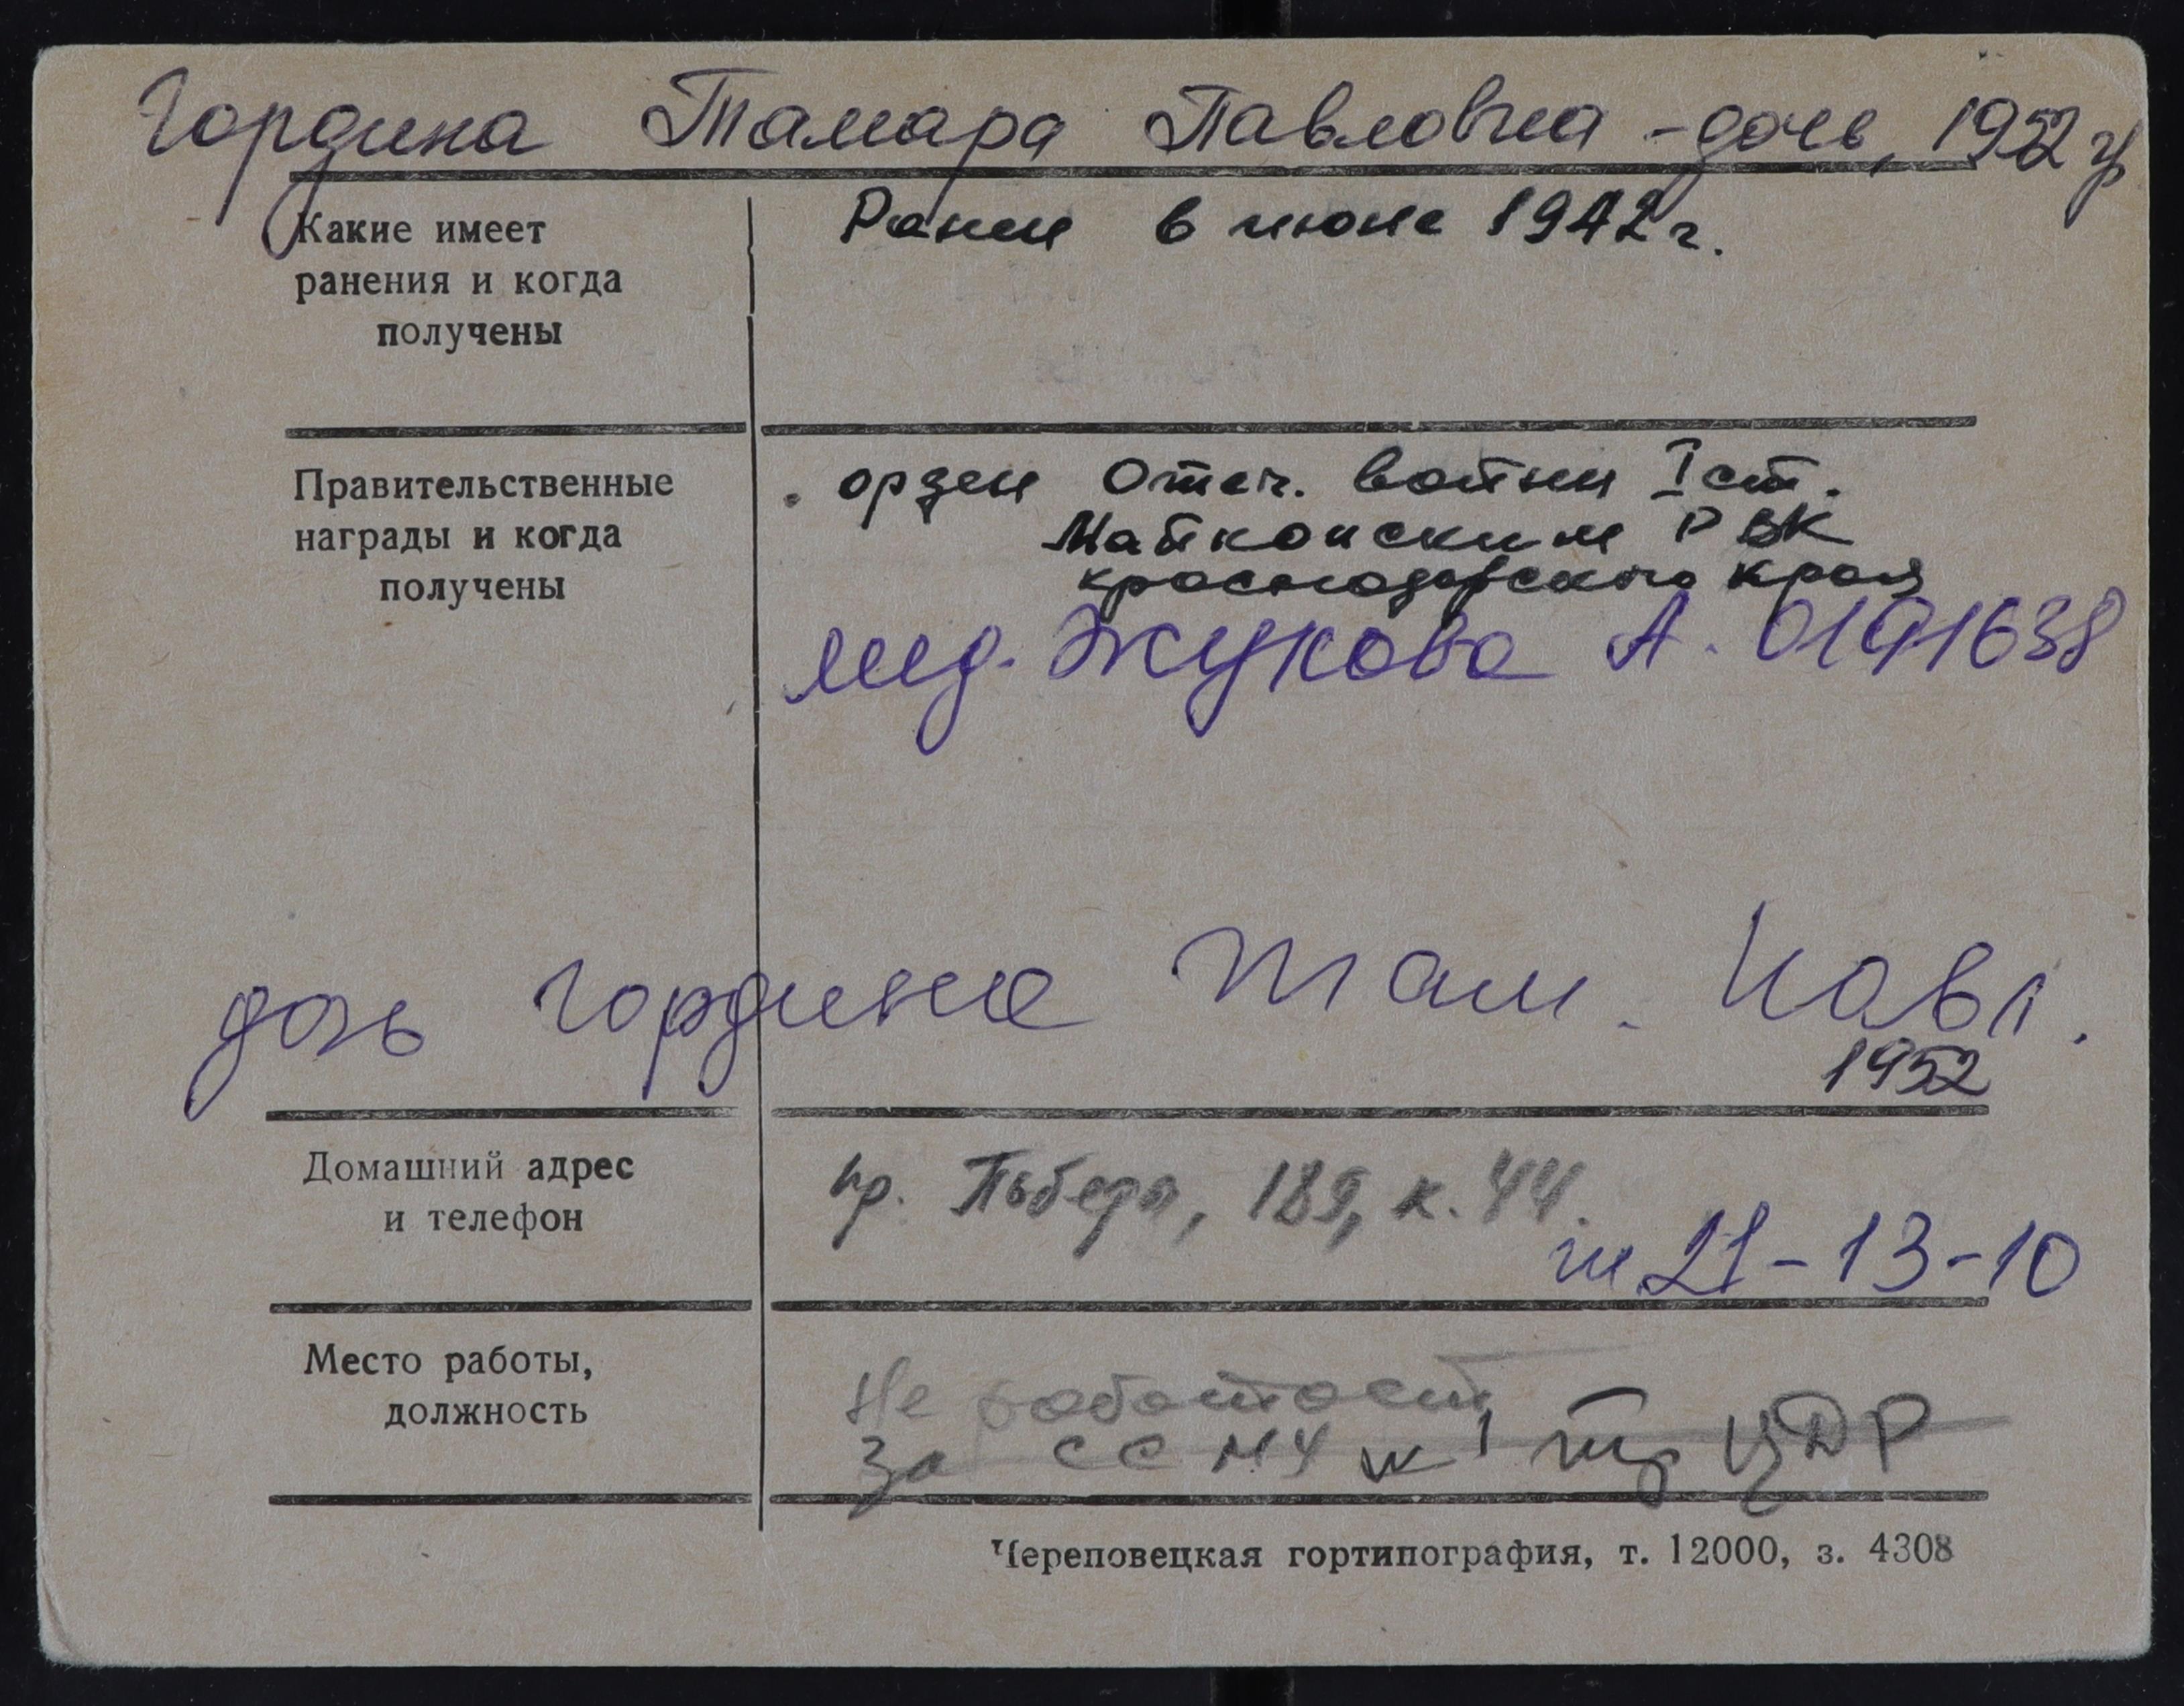 Гордина Тамара Павловна - дочь, 1952 г.
Какие имеет
ранения и когда
получены
Ранен в июне 1942 г.
Правительственные
награды и когда
получены
орден Отеч. войны I ст.
Майкопским РВК
Краснодарского края
мед. Жукова А. 0191638
дочь Гордина Там. Павл.
1952
Домашний адрес
и телефон
пр. Победы, 189, к. 44.
т 21-13-10
Место работы,
должность
Не работает
ЦДР
Череповецкая гортипография, т. 12000, з. 4308